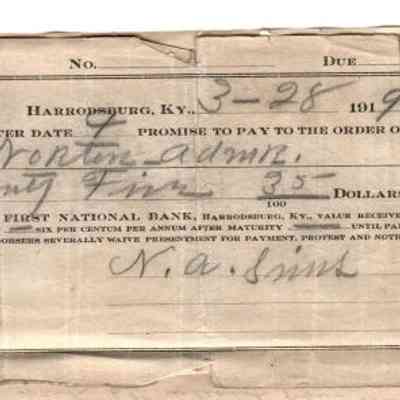 No. DUE
HARRODSBURG, KY., 3-28 1919
TER DATE I PROMISE TO PAY TO THE ORDER O
Norton Admr.
nty Five 35/100 DOLLARS
FIRST NATIONAL BANK, HARRODSBURG, KY., VALUE RECEIVE
SIX PER CENTUM PER ANNUM AFTER MATURITY UNTIL PAI
DORSERS SEVERALLY WAIVE PRESENTMENT FOR PAYMENT, PROTEST AND NOTI
N. A. Sims